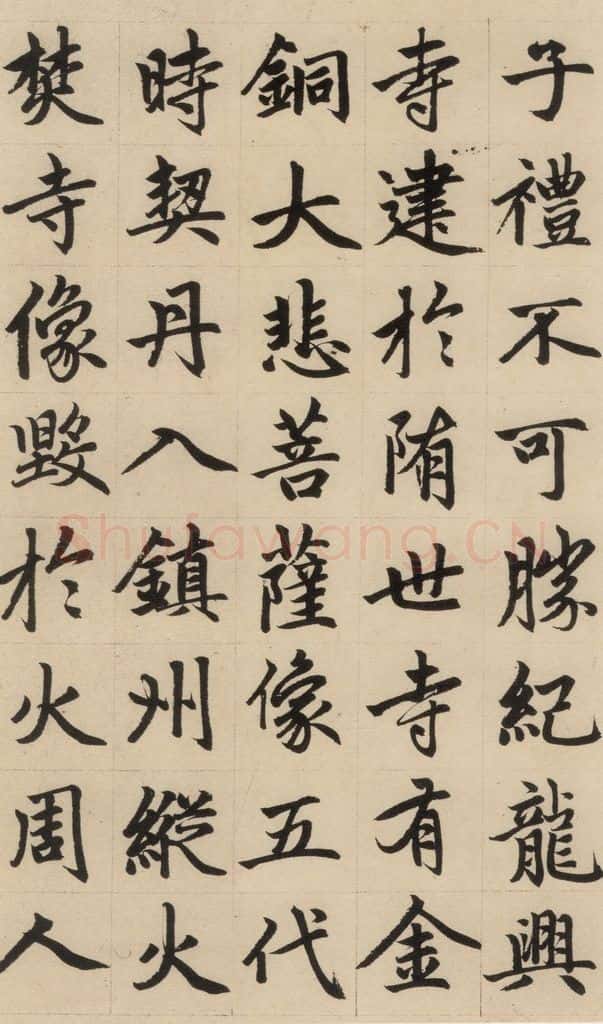 子禮不可勝紀龍興
寺建於隋世寺有金
銅大悲菩薩像五代
時契丹入鎮州縱火
焚寺像毀於火周人
Shufawang.CN